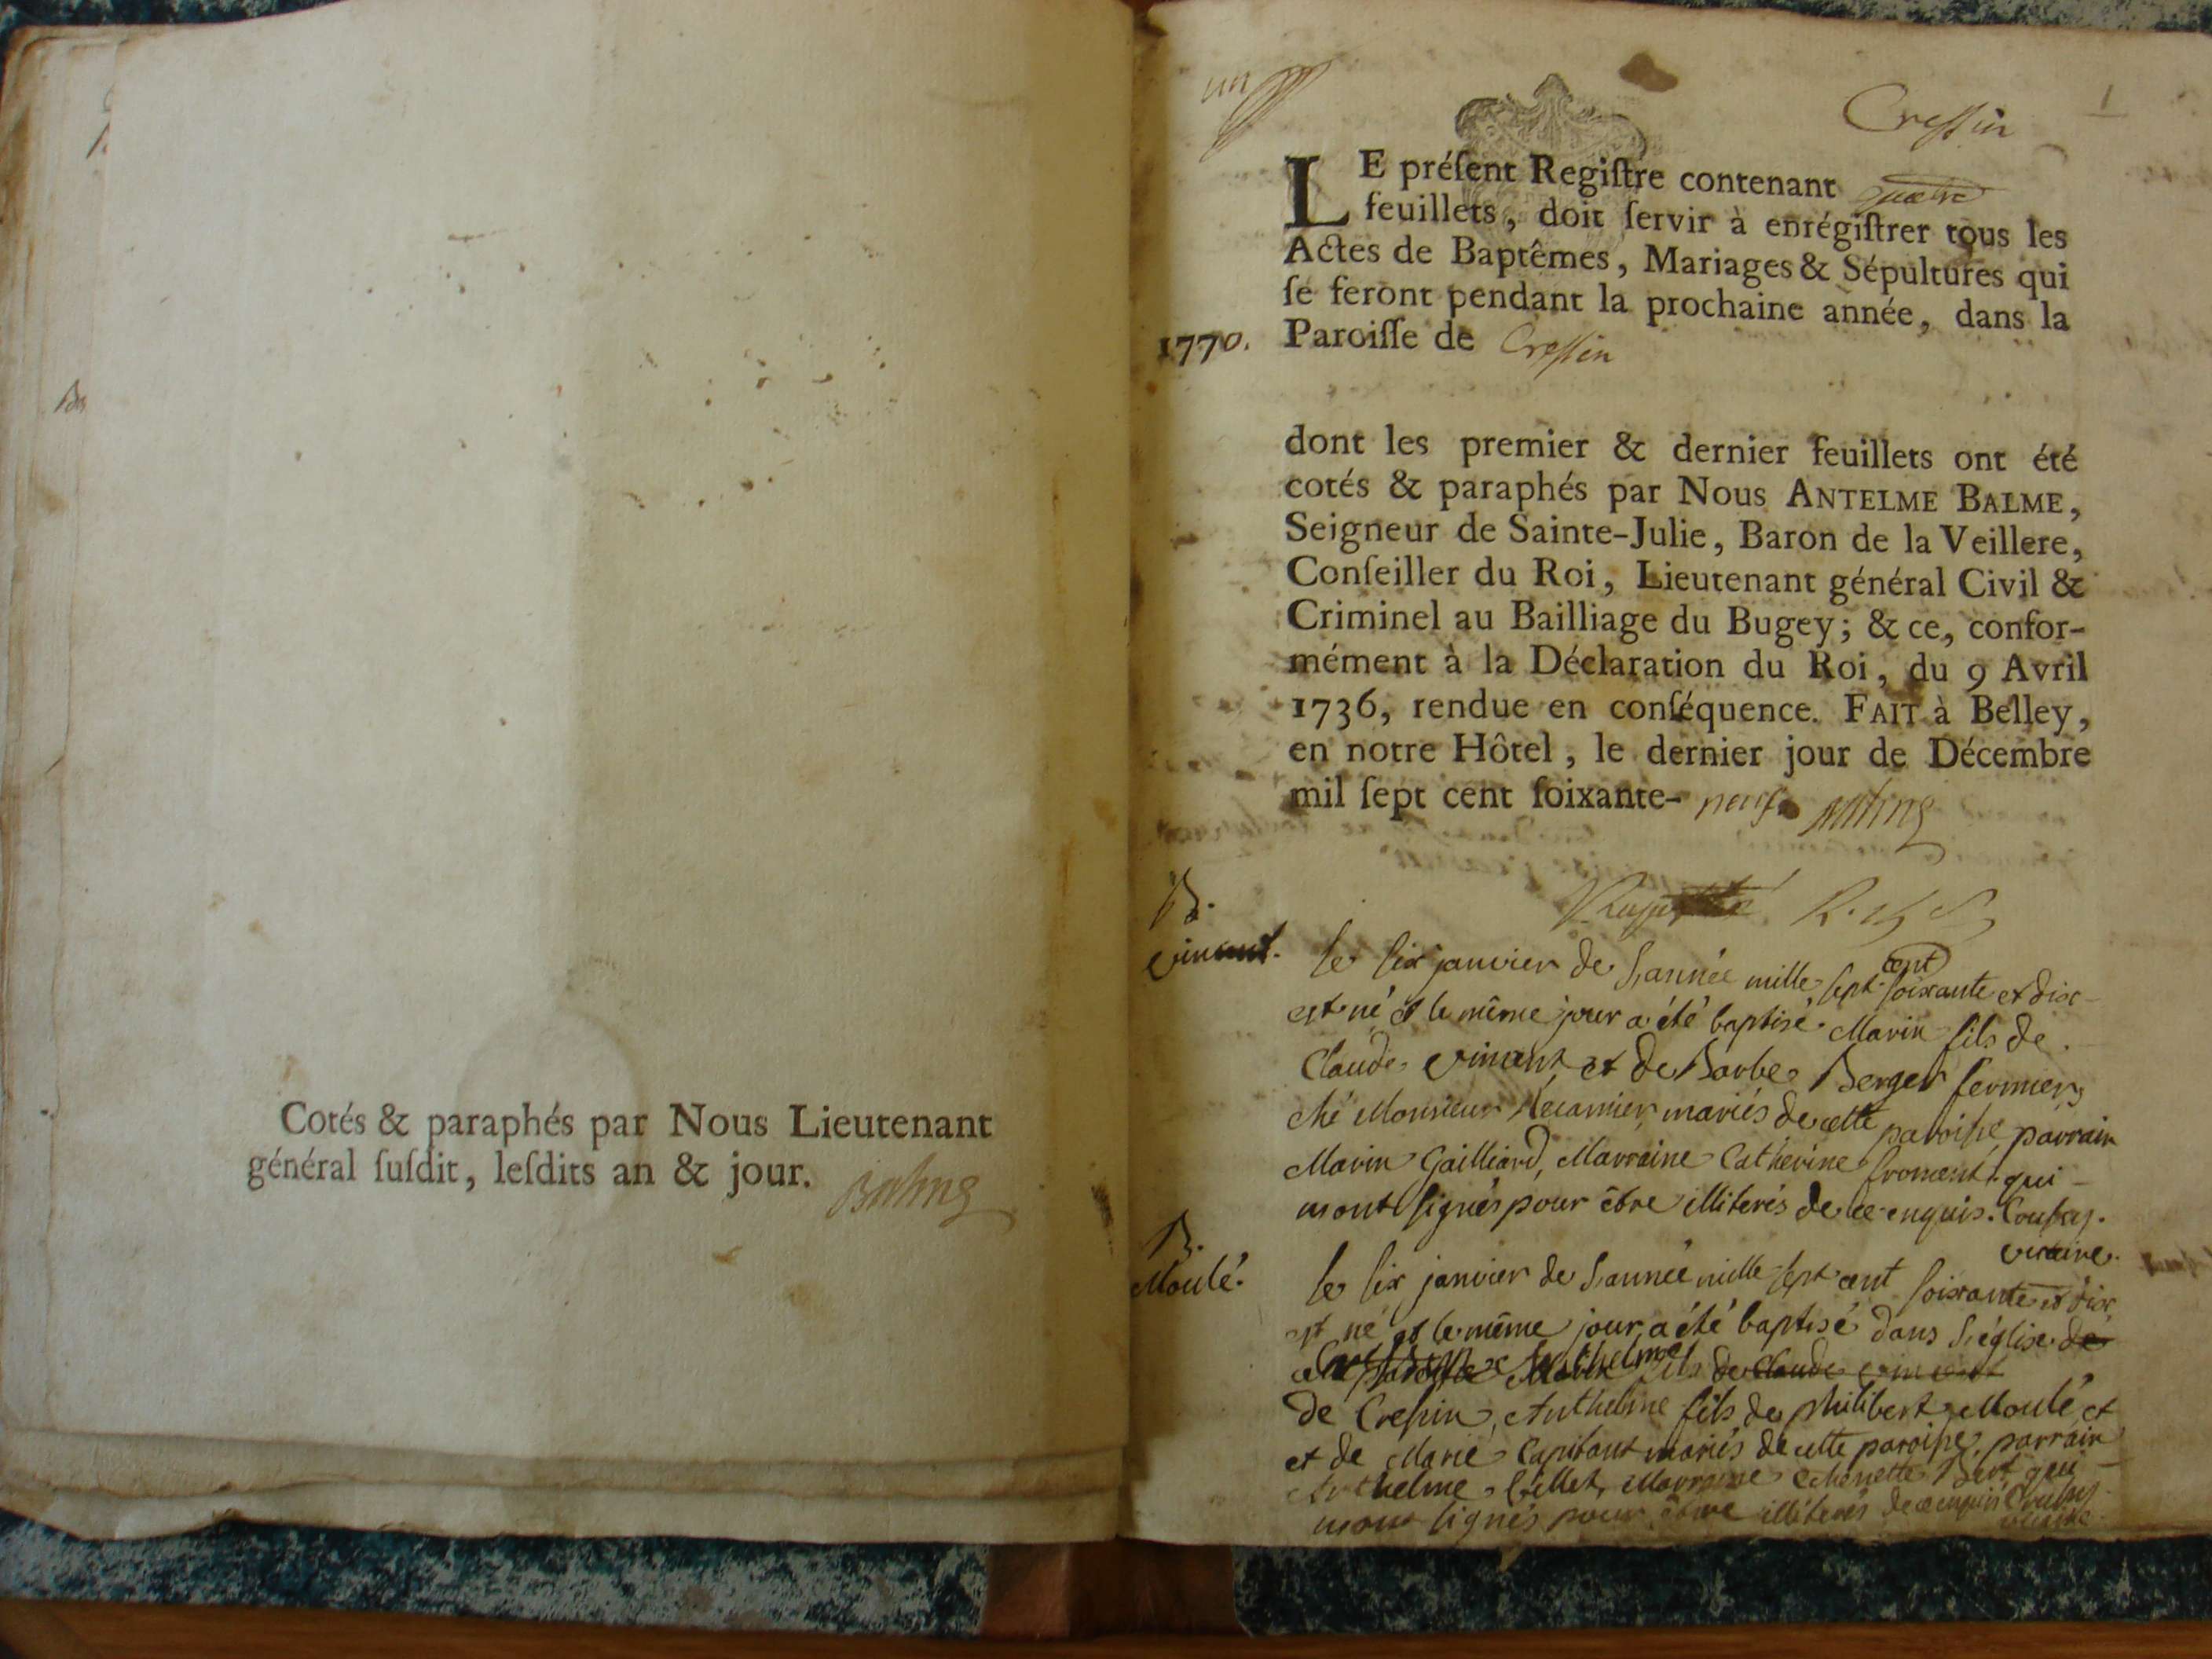 Cotés & paraphés par Nous Lieutenant
général ſuſdit, leſdits an & jour. Balme
un
Creſſin
1
LE préſent Regiſtre contenant quatre
feuillets, doit ſervir à enrégiſtrer tous les
Actes de Baptêmes, Mariages & Sépultures qui
ſe feront pendant la prochaine année, dans la
1770. Paroiſſe de Creſſin
dont les premier & dernier feuillets ont été
cotés & paraphés par Nous ANTELME BALME,
Seigneur de Sainte-Julie, Baron de la Veillere,
Conſeiller du Roi, Lieutenant général Civil &
Criminel au Bailliage du Bugey; & ce, confor-
mément à la Déclaration du Roi, du 9 Avril
1736, rendue en conſéquence. FAIT à Belley,
en notre Hôtel, le dernier jour de Décembre
mil ſept cent ſoixante- neuf. Balme
B.
vincent.
le six janvier de l'année mille sept cent soixante et dix
est né et le même jour a été baptisé Marin fils de
Claude vincent et de Barbe Berger fermiers
ché Monsieur Récamier, mariés de cette paroisse, parrain
Marin Gailliard, Marraine Catherine froment qui
n'ont signés pour être illiterés de ce enquis. Coubay.
vicaire.
B.
Moulé.
le six janvier de l'année mille sept cent soixante et dix
est né et le même jour a été baptisé dans l'église de
fils de Claude vincent
de Cressin, Anthelme fils de philibert Moulé et
et de Marie Capitant mariés de cette paroisse, parrain
Anthelme Billet, Marraine qui
n'ont signés pour être illiterés de ce enquis
vicaire.